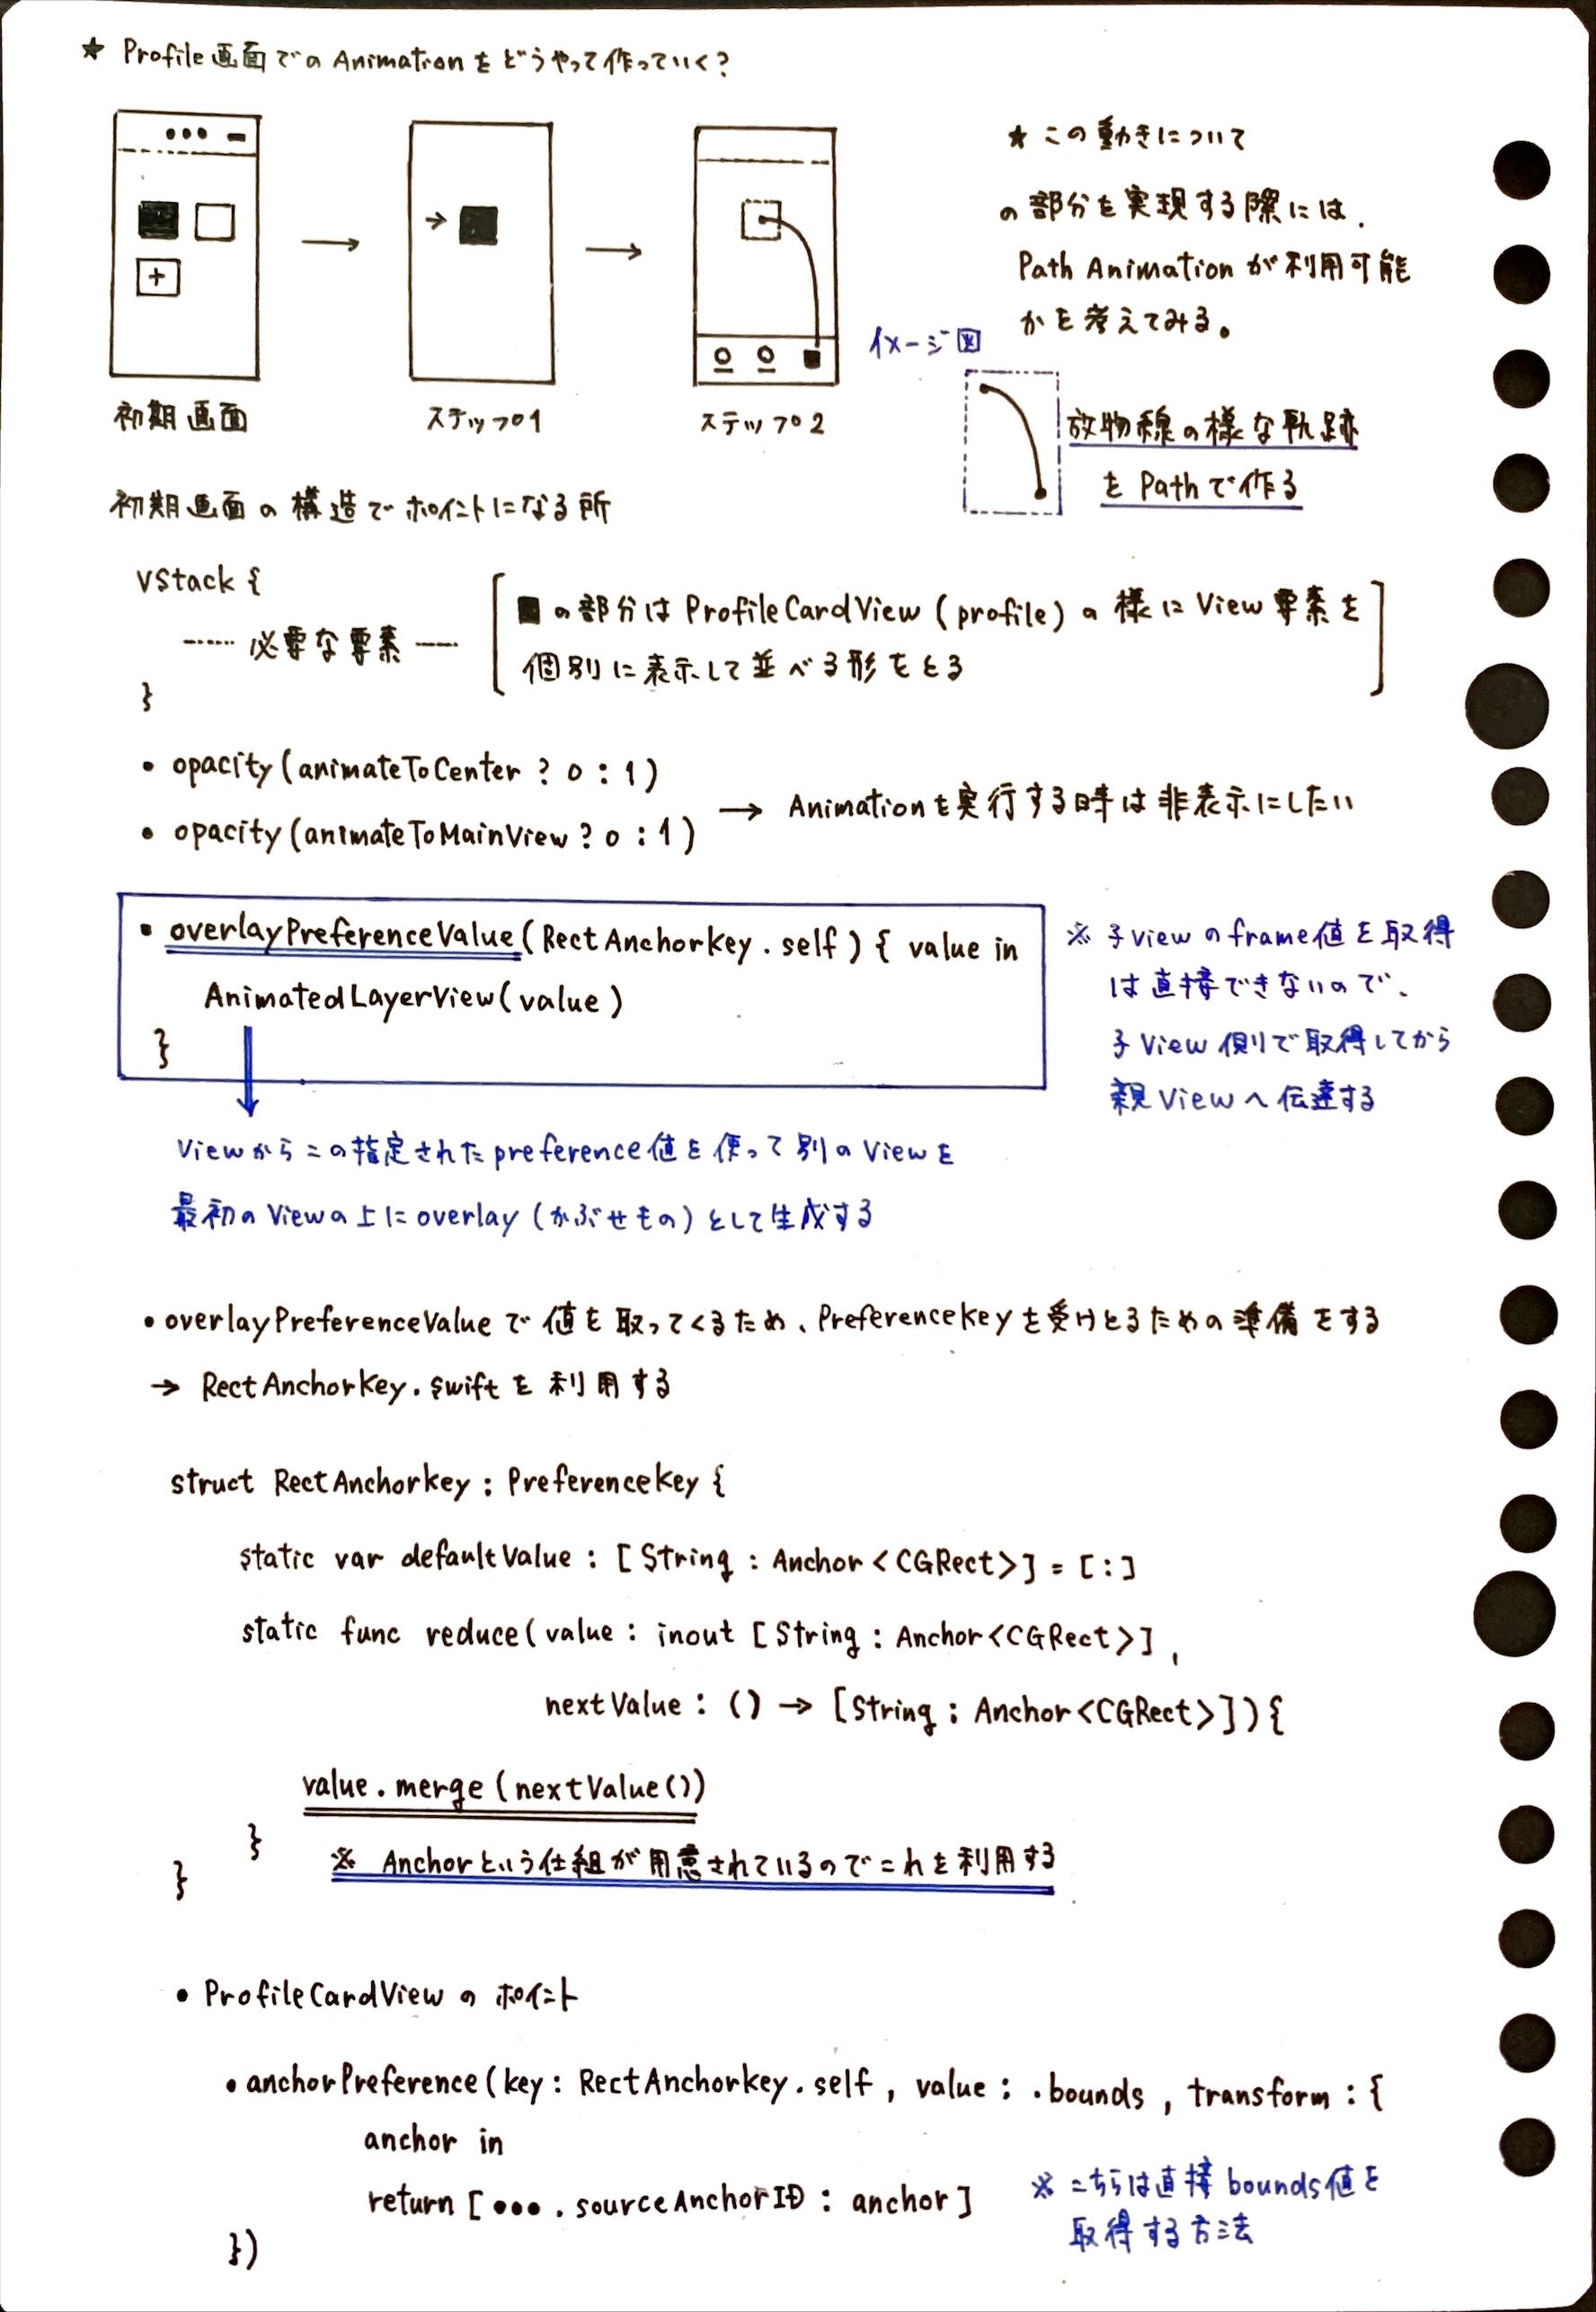 ★ Profile画面でのAnimationをどうやって作っていく?
初期画面
ステップ1
ステップ2
★ この動きについて
の部分を実現する際には、
Path Animationが利用可能
かを考えてみる。
イメージ図
放物線の様な軌跡
をPathで作る
初期画面の構造でポイントになる所
VStack {
…… 必要な要素 ……
}
■の部分はProfileCardView(profile)の様にView要素を
個別に表示して並べる形をとる
• opacity(animateToCenter ? 0 : 1)
• opacity(animateToMainView ? 0 : 1)
→ Animationを実行する時は非表示にしたい
• overlayPreferenceValue(RectAnchorKey.self) { value in
AnimatedLayerView(value)
}
※ 子Viewのframe値を取得
は直接できないので、
子View側で取得してから
親Viewへ伝達する
Viewからこの指定されたpreference値を使って別のViewを
最初のViewの上にoverlay(かぶせもの)として生成する
• overlayPreferenceValueで値を取ってくるため、PreferenceKeyを受けとるための準備をする
→ RectAnchorKey.swiftを利用する
struct RectAnchorKey : PreferenceKey {
static var defaultValue : [String : Anchor<CGRect>] = [:]
static func reduce(value : inout [String : Anchor<CGRect>],
nextValue : () → [String : Anchor<CGRect>]) {
value.merge(nextValue())
}
※ Anchorという仕組が用意されているのでこれを利用する
}
• ProfileCardViewのポイント
• anchorPreference(key : RectAnchorKey.self, value : .bounds, transform : {
anchor in
return [•••.sourceAnchorID : anchor]
})
※ こちらは直接bounds値を
取得する方法